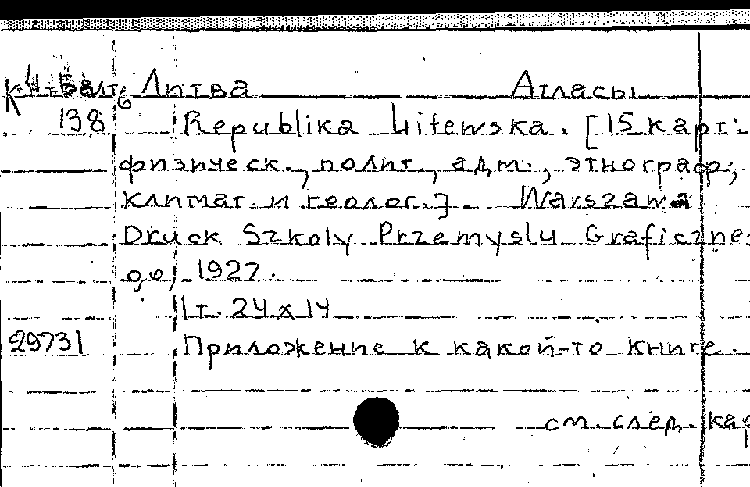 Литва Атласы
138 Republika Litewska. [15 карт:
физическ., полит., адм., этнограф.,
климат. и геолог.]. Warszawa
Druck Szkoly Przemyslu Graficzne-
go, 1927.
1т. 24 x 14
29731 Приложение к какой-то книге.
см. след. кар